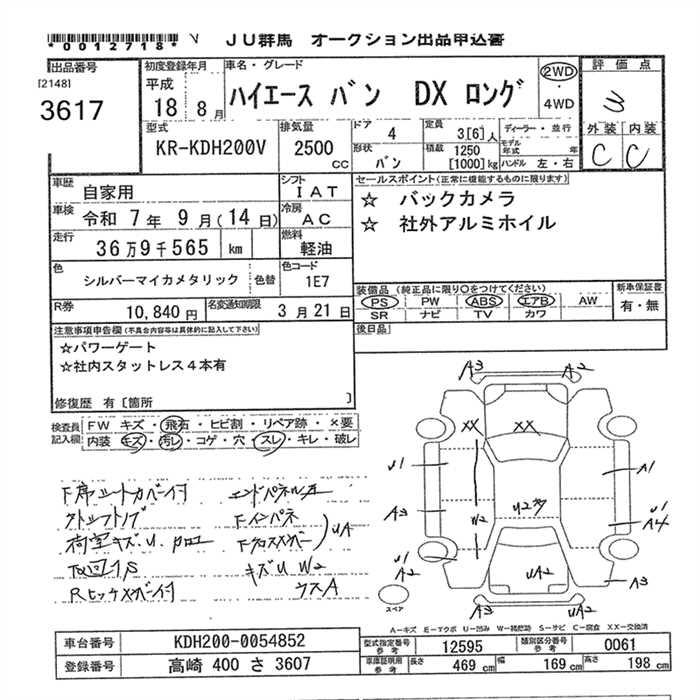 *0012718*
V
JU群馬 オークション出品申込書
出品番号
[2148]
3617
初度登録年月
平成
18 8月
車名・グレード
ハイエース バン DX ロング
2WD
・
4WD
評価点
3
外装 内装
C C
型式
KR-KDH200V
排気量
2500
CC
ドア
4
定員
3[6]人
ディーラー・並行
形状
バン
積載
1250
[1000]kg
モデル
年式 年
ハンドル 左・右
車歴
自家用
シフト
IAT
車検
令和 7年 9月(14日)
冷房
AC
走行
36万9千565 km
燃料
軽油
色
シルバーマイカメタリック
色替
色コード
1E7
R券
10,840円
名変通知期限
3月21日
セールスポイント(正常に機能するものに限ります)
☆ バックカメラ
☆ 社外アルミホイル
装備品(純正品に限り○をつけてください)
PS PW ABS エアB AW
SR ナビ TV カワ
新車保証書
有・無
後日品
注意事項申告欄(不具合内容等は具体的に記入して下さい)
☆パワーゲート
☆社内スタットレス4本有
修復歴 有[箇所 ]
検査員
記入欄
FW キズ・飛石・ヒビ割・リペア跡・×要
内装 キズ・汚レ・コゲ・穴・スレ・キレ・破レ
下席シートカバー付
エンドパネル
荷室キズU
キズU W2
ウスA
UA
A3 A2
XX XX
U1 A1
A3 W2 U2多 U1
A4
U1
A2
UA2 A3
A3 UA2
スペア
A-キズ E-エクボ U-凹み W-補修跡 S-サビ C-腐食 XX-交換済
車台番号
KDH200-0054852
登録番号
高崎 400 さ 3607
型式指定番号
参考
12595
類別区分番号
参考
0061
車庫証明用
参考
長さ 469 cm 幅 169 cm 高さ 198 cm